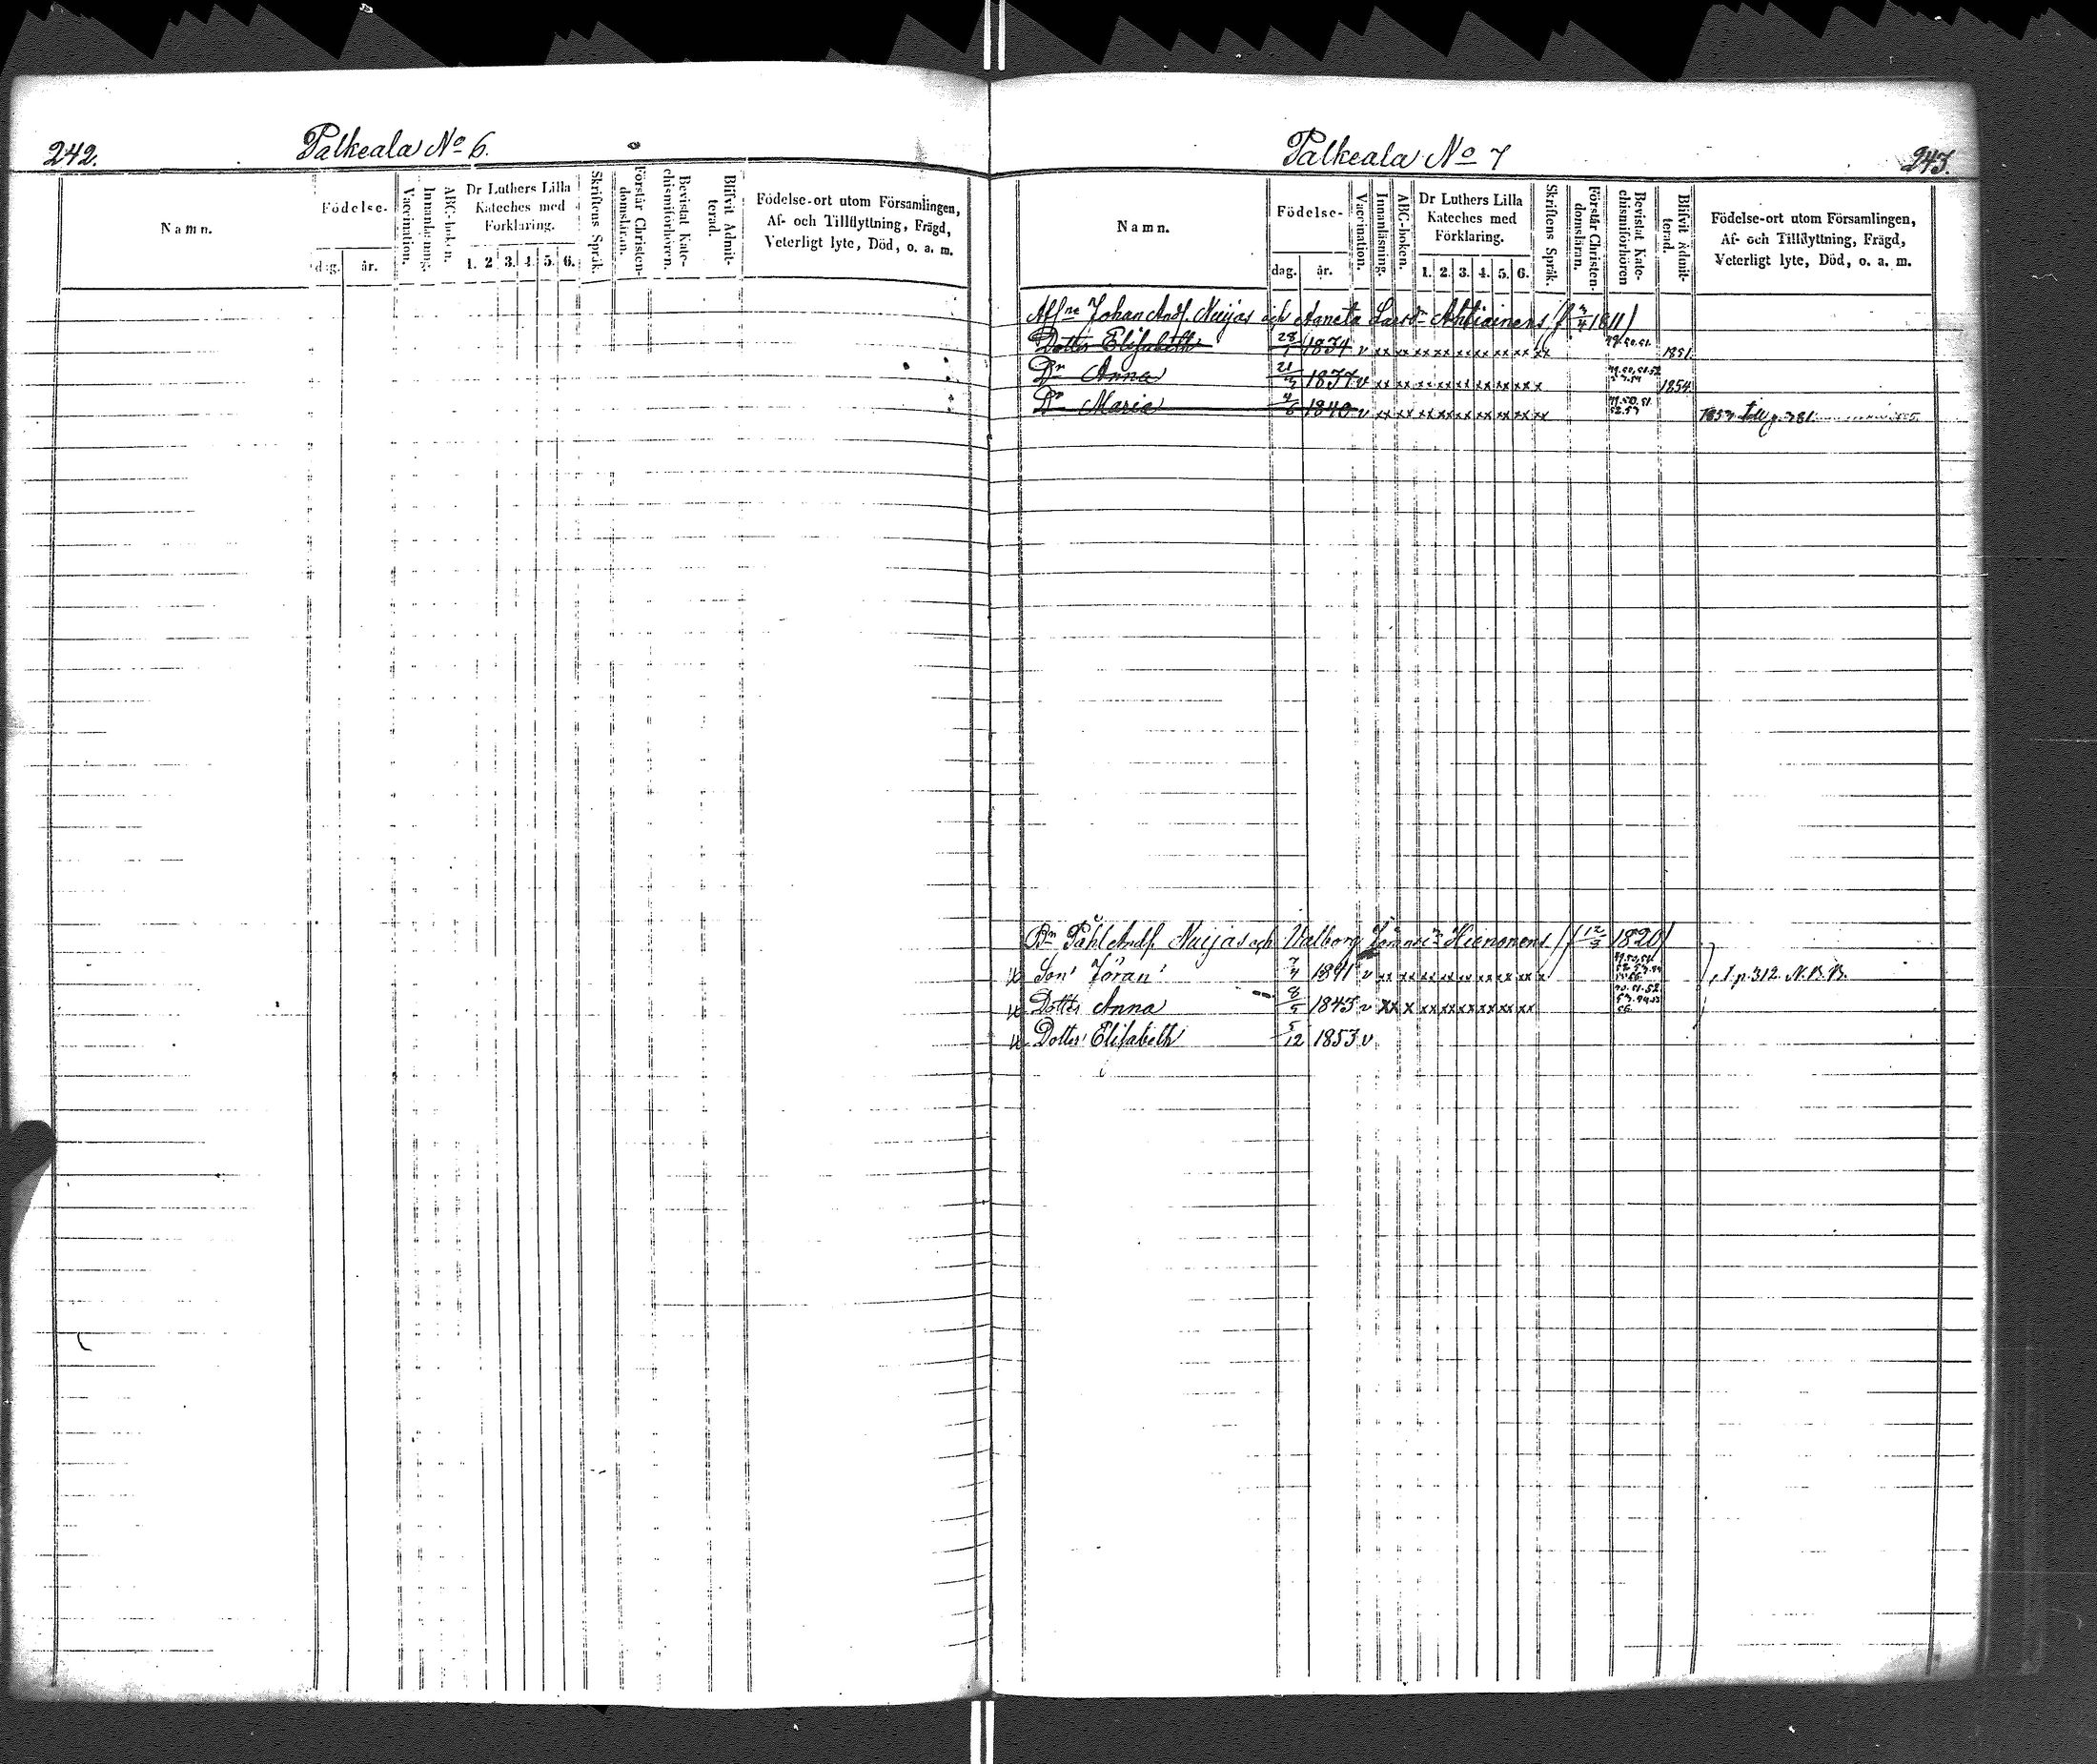 242.
Palkeala No 6.
Namn.
Födelse-
dag. år.
Vaccination.
Innanläsning.
ABC-boken.
Dr Luthers Lilla
Kateches med
Förklaring.
1. 2 3. 4. 5. 6.
Skriftens Språk.
Förstår Christen-
domsläran.
Bevistat Kate-
chismiförhören.
Blifvit Admit-
terad.
Födelse-ort utom Församlingen,
Af- och Tillflyttning, Frägd,
Veterligt lyte, Död, o. a. m.
Palkeala No 7
243.
Namn.
Födelse-
dag. år.
Vaccination.
Innanläsning.
ABC-boken.
Dr Luthers Lilla
Kateches med
Förklaring.
1. 2. 3. 4. 5. 6.
Skriftens Språk.
Förstår Christen-
domsläran.
Bevistat Kate-
chismiförhören
Blifvit Admit-
terad.
Födelse-ort utom Församlingen,
Af- och Tillflyttning, Frägd,
Veterligt lyte, Död, o. a. m.
Johan Andf. Nuijas och Larsdr Ahtiainens 1811
Dotter Elisabeth 1834 v xx xx xx xx xx xx xx xx xx 1851
Dr Anna 1837 v xx xx xx xx xx xx xx xx 1854
Dr Maria 4/6 1840 v xx xx xx xx xx xx xx xx xx 1853 p. 381
Påhl Andf. Nuijas och Walborg Hienonens 12/3 1820
Son Jöran 7/4 1841 v xx xx xx xx xx xx xx xx p. 312. N.B.B.
Dotter Anna 8/5 1845 v xx x xx xx xx xx xx xx
Dotter Elisabeth 5/12 1853 v